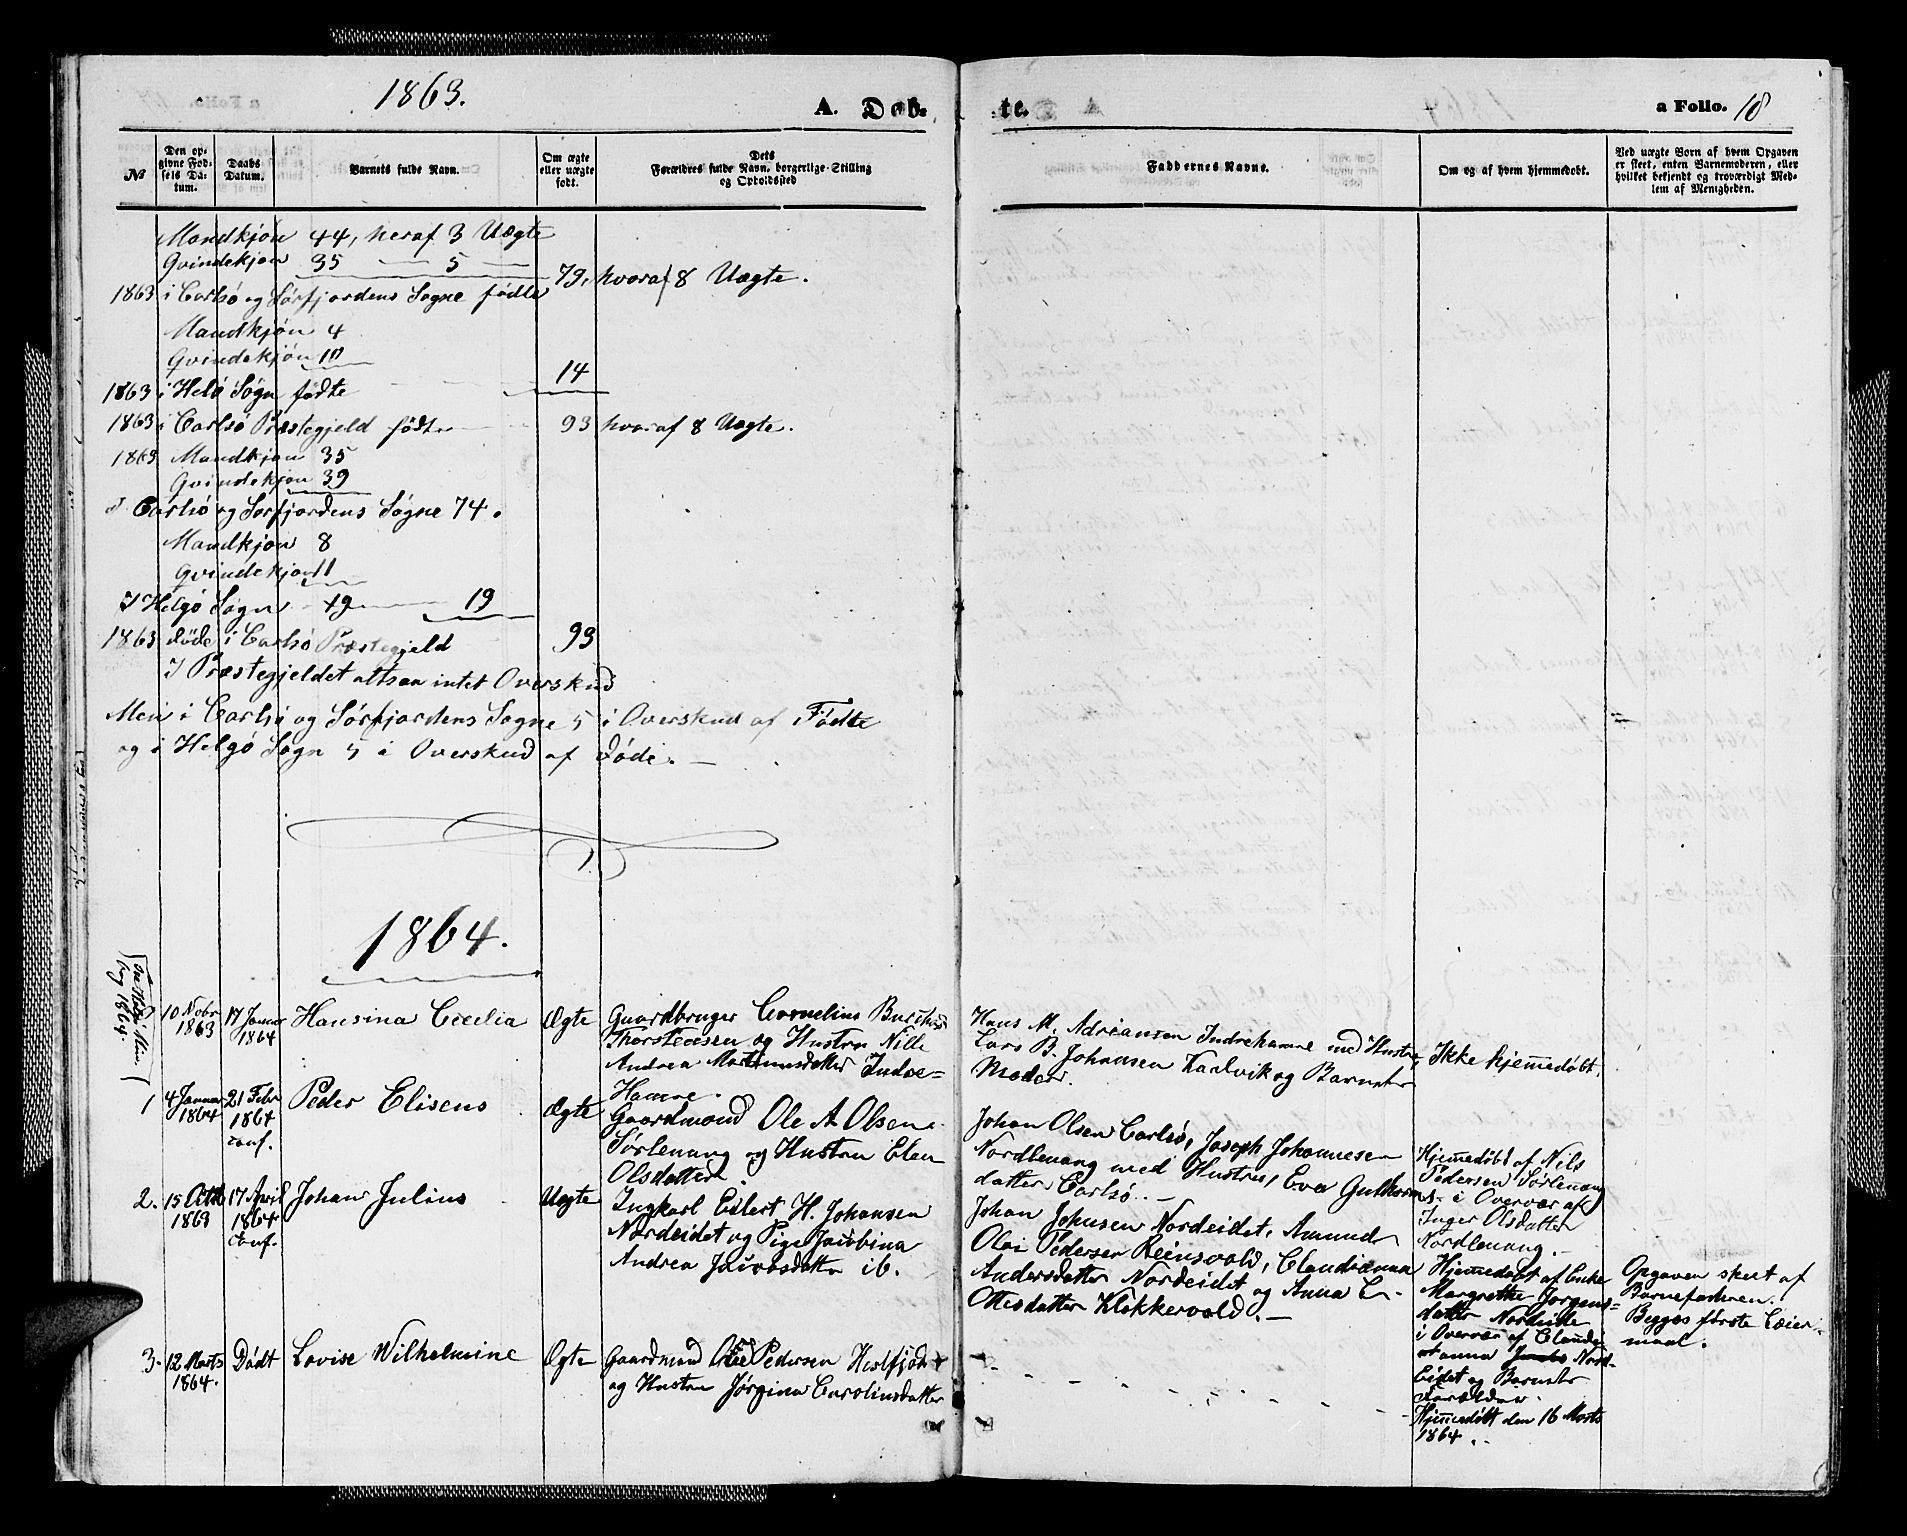 1863.
A. Døb-
te.
a Folio. 18
№
Den op-
givne Fød-
sels Da-
tum.
Daabs
Datum.
Barnets fulde Navn.
Om ægte
eller uægte
født.
Dets
Forældres fulde Navn, borgerlige Stilling
og Opholdssted
Faddernes Navne.
Om og af hvem hjemmedøbt.
Ved uægte Børn af hvem Opgaven
er skeet, enten Barnemoderen, eller
hvilket bekjendt og troværdigt Med-
lem af Menigheden.
Mandkjøn 44, heraf 3 Uægte
Qvindekjøn 35 — 5 —
1863 i Carlsø og Sørfjordens Sogne fødte 79, hvoraf 8 Uægte.
Mandkjøn 4
Qvindekjøn 10
1863 i Helø Sogn fødte 14
1863 i Carlsø Præstegjeld fødte 93 hvoraf 8 Uægte.
1863 Mandkjøn 35
Qvindekjøn 39
I Carlsø og Sørfjordens Sogne 74.
Mandkjøn 8
Qvindekjøn 11
I Helgø Sogn 19 19
1863 døde i Carlsø Præstegjeld 93
I Præstegjeldet altsaa intet Overskud
Men i Carlsø og Sørfjordens Sogne 5 i Overskud af Fødte
og i Helgø Sogn 5 i Overskud af Døde. —
1864.
10 Nobr
1863
17 Januar
1864
Hansina Cecilia
Ægte
Gaardbruger Cornelius
Thorstensen og Hustru Nille
Andrea Martinusdatter Indre=
Hamne.
Hans M. Adriansen Indrehamne med Hustru,
Lars B. Johansen Karlvik og Barnets
Moder.
Ikke hjemmedøbt.
1
4 Januar
1864
21 Febr
1864
conf.
Peder Eliseus
Ægte
Gaardmand Ole A Olsen
Sørlenang og Hustru Elen
Olsdatter
Johan Olsen Carlsø, Joseph Johannesen
Nordlenang med Hustru, Eva
datter Carlsø. —
Hjemmedøbt af Nils
Pedersen Sørlenang
i Overvær af
Inger Olsdatter
Nordlenang. —
2.
15 Octbr
1863
17 April
1864
conf.
Johan Julius
Uægte
Ungkarl Eilert H. Johansen
Nordeidet og Pige Jacobina
Andrea Jacobsdatter ib.
Johan Johnsen Nordeidet, Amund
Olai Pedersen Reinsvold, Claudianna
Andersdatter Nordeidet og Anna E-
Ottesdatter Klokkervold. —
Hjemmedøbt af Enke
Margrethe Jørgens=
datter Nordeide
i Overvær af Claudi
anna Nord-
Eidet og Barnets
Forældre.
Opgaven skeet af
Barnefaderen.
Begges første Leier-
maal.
3.
12 Marts
1864.
Dødt
Lovise Wilhelmine
Ægte
Gaardmand Ole Pedersen
og Hustru Jørgina Carolinsdatter
Hjemmedøbt den 16 Marts
1864.